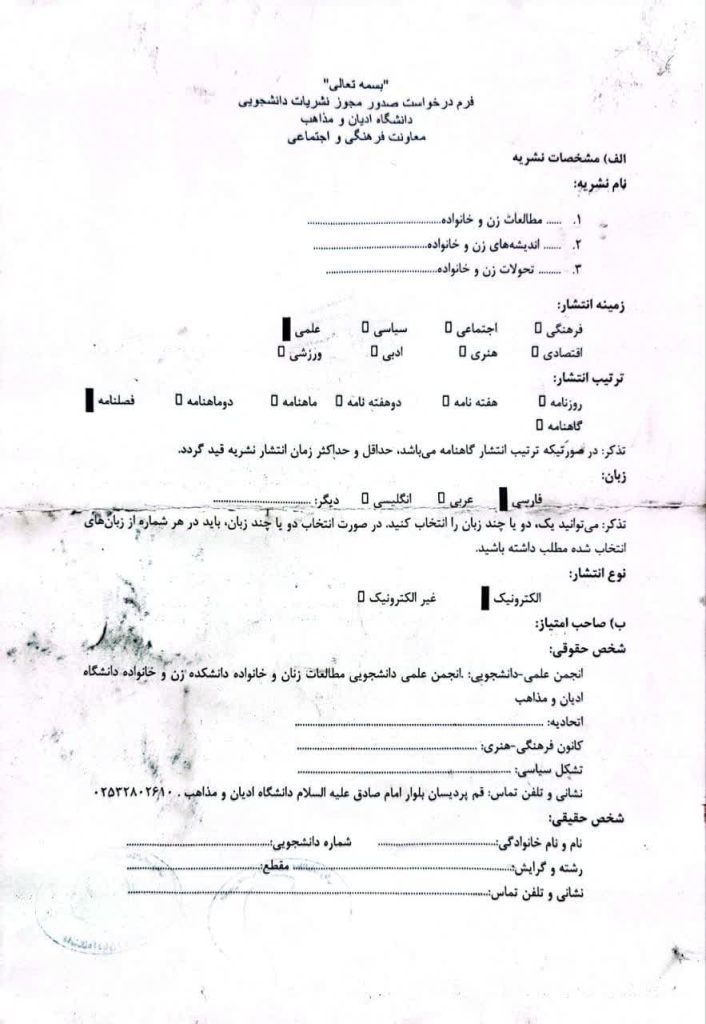 "بسمه تعالی"
فرم درخواست صدور مجوز نشریات دانشجویی
دانشگاه ادیان و مذاهب
معاونت فرهنگی و اجتماعی
الف) مشخصات نشریه
نام نشریه:
۱. ...... مطالعات زن و خانواده..........................................
۲. ...... اندیشه‌های زن و خانواده....................................
۳. ........ تحولات زن و خانواده...................................
زمینه انتشار:
فرهنگی □ اجتماعی □ سیاسی □ علمی ■
اقتصادی □ هنری □ ادبی □ ورزشی □
ترتیب انتشار:
روزنامه □ هفته نامه □ دوهفته نامه □ ماهنامه □ دوماهنامه □ فصلنامه ■
گاهنامه □
تذکر: در صورتیکه ترتیب انتشار گاهنامه می‌باشد، حداقل و حداکثر زمان انتشار نشریه قید گردد.
زبان:
فارسی ■ عربی □ انگلیسی □ دیگر: ..............................
تذکر: می‌توانید یک، دو یا چند زبان را انتخاب کنید. در صورت انتخاب دو یا چند زبان، باید در هر شماره از زبان‌های
انتخاب شده مطلب داشته باشید.
نوع انتشار:
الکترونیک ■ غیر الکترونیک □
ب) صاحب امتیاز:
شخص حقوقی:
انجمن علمی-دانشجویی: .انجمن علمی دانشجویی مطالعات زنان و خانواده دانشکده زن و خانواده دانشگاه
ادیان و مذاهب
اتحادیه: ..............................................................................
کانون فرهنگی-هنری: ........................................................
تشکل سیاسی: ..................................................................
نشانی و تلفن تماس: قم پردیسان بلوار امام صادق علیه السلام دانشگاه ادیان و مذاهب . ۰۲۵۳۲۸۰۲۶۱۰
شخص حقیقی:
نام و نام خانوادگی:.................................... شماره دانشجویی:.............................................
رشته و گرایش:...................................................................... مقطع:..........................................
نشانی و تلفن تماس:...................................................................................................................